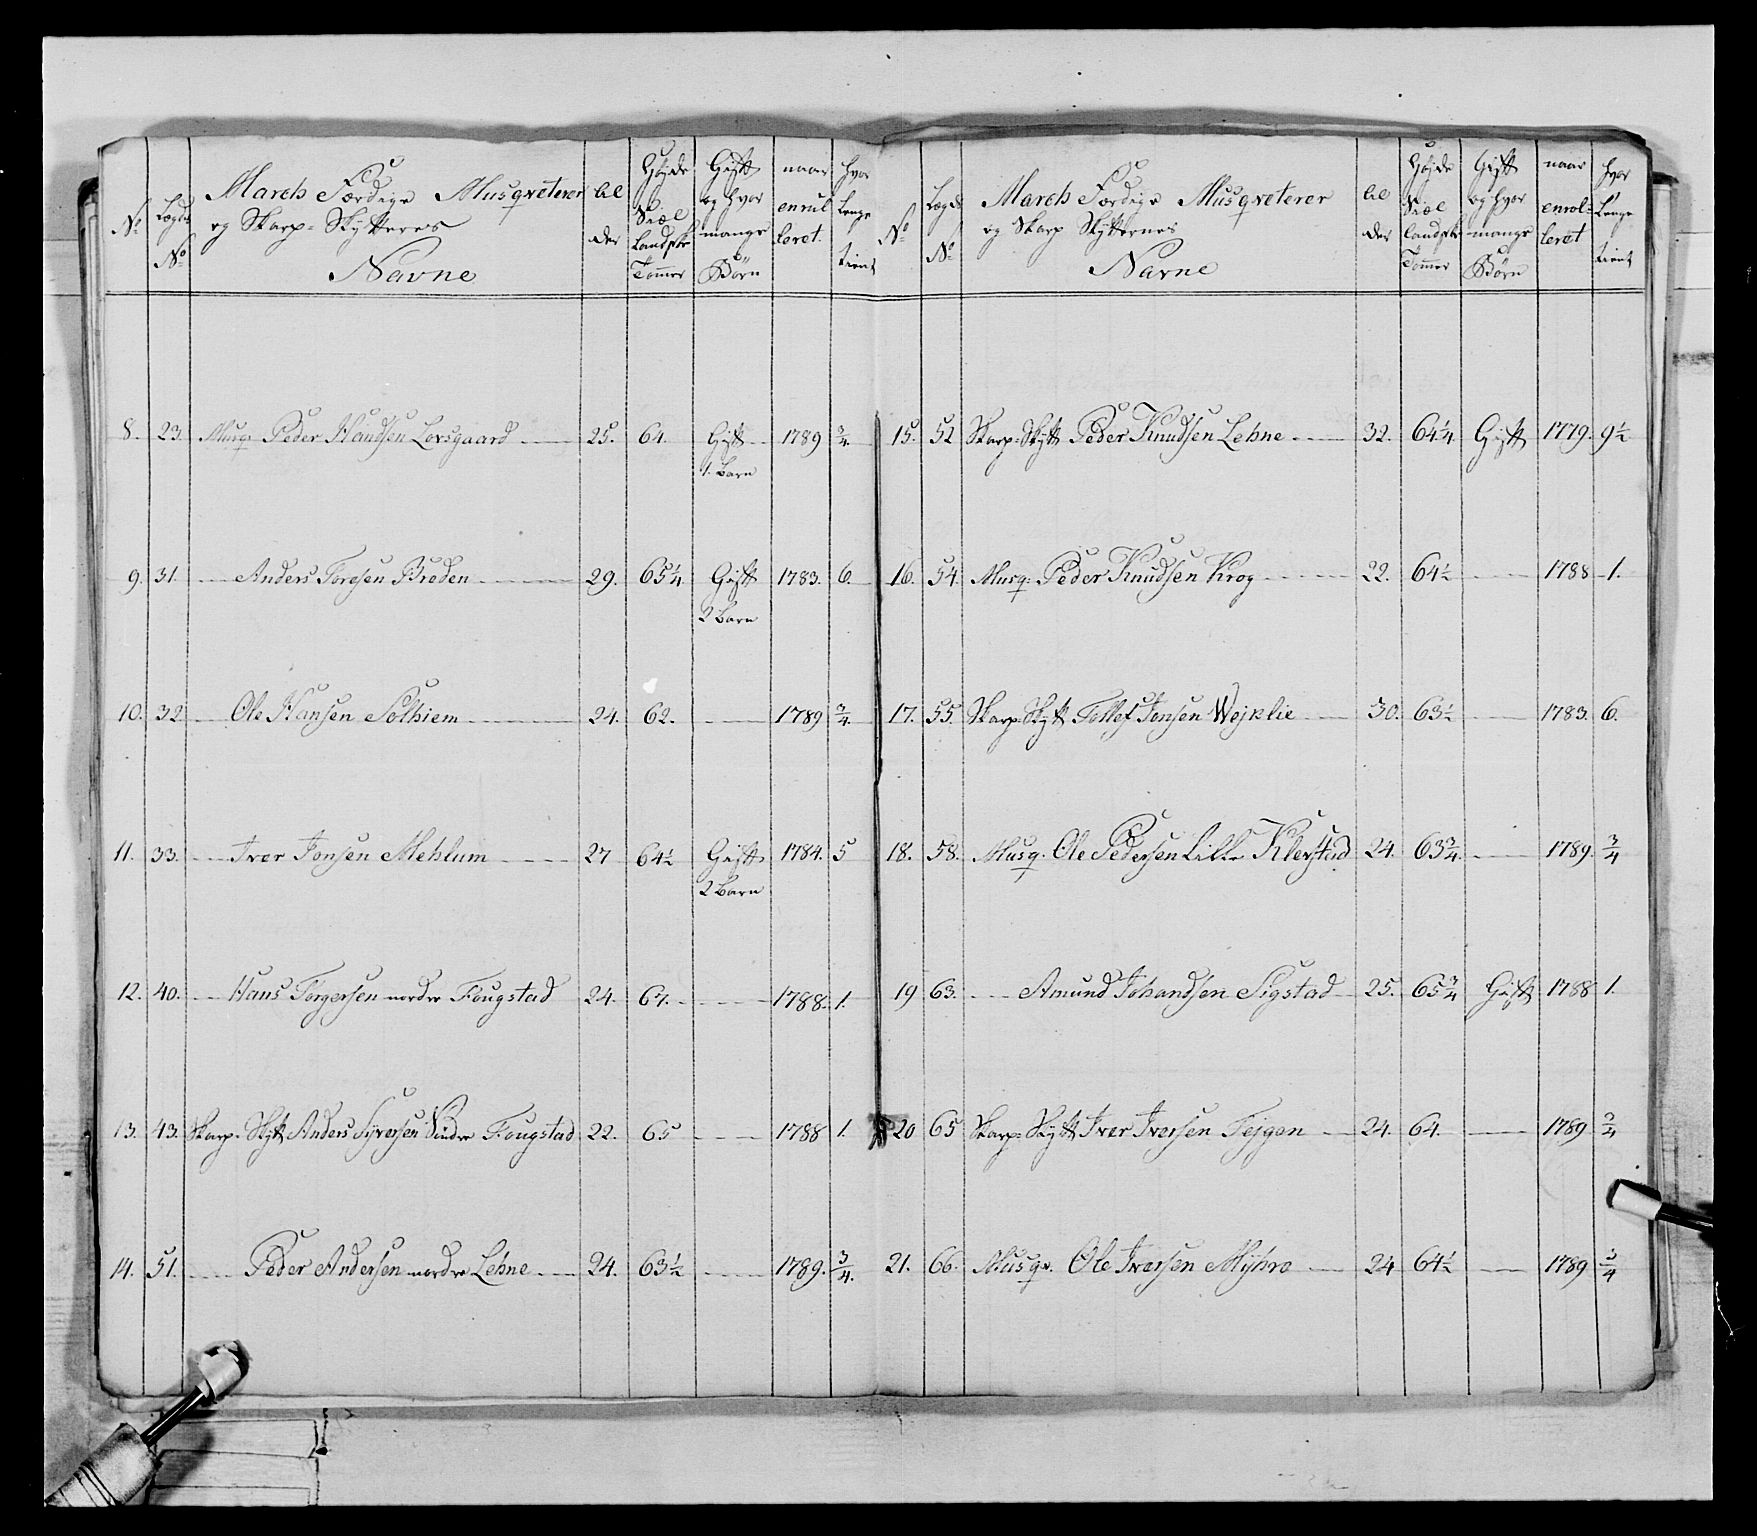 No Lægds No March Færdige Musqveterer og Skarp-Skytteres Navne Al der Høyde Siæl landske Tommer Gift og hvor mange Børn naar enrul leret. hvor lenge tient
8. 23. Musq: Peder Handsen Lorsgaard 25. 64. Gift 1789 3/4
1. Barn
9. 31. Anders Toresen Breden 29. 65 1/4 Gift 1783. 6.
2 Barn
10. 32 Ole Hansen Solhiem 24. 62. 1789 3/4.
11. 33. Iver Jonsen Mehlum 27 64 1/2 Gift 1784. 5
2 Barn
12. 40. Hans Torgersen nordre Fougstad 24. 67. 1788. 1.
13. 43. Skarp-Skytt Anders Syversen Sindre Fougstad 22. 65 1788 1.
14. 51. Peder Andersen nordre Lehne 24. 63 1/2 1789. 3/4.
No Lægds No March Færdige Musqveterer og Skarp Skytternes Navne Al der Høyde Siæl landske Tommer Gift og hvor mange Børn naar enrol= leret hvor lenge tient
15. 52 Skarp-Skytt Peder Knudsen Lehne 32. 64 1/4 Gift 1779. 9 1/2
16. 54. Musq: Peder Knudsen Krog 22. 64 1/2 1788 1.
17. 55. Skarp-Skytt Tollef Jonsen Wejklie 30. 63 1/2 1783. 6.
18. 58. Musq. Ole Pedersen Lille Klevstad 24. 63 3/4. 1789. 3/4
19 63. Amund Johandsen Sigstad 25. 65 3/4 Gift 1788 1.
20 65 Skarp-Skytt Iver Iversen Fejgen 24. 64. 1789 3/4
21. 66. Musqv. Ole Iversen Myhre 24 64 1/2 1789 3/4